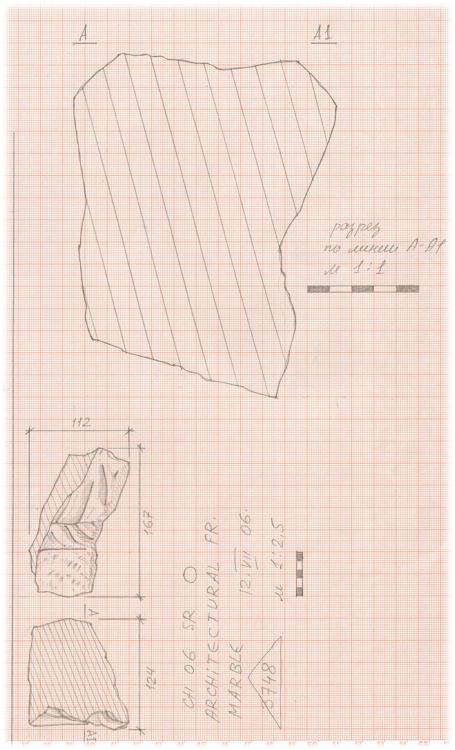 A A1
разрез
по линии A-A1
м 1:1
112
167
A
124
A1
CH 06 SR O
ARCHITECTURAL FR.
MARBLE 12.VII 06.
3748 м 1:2,5